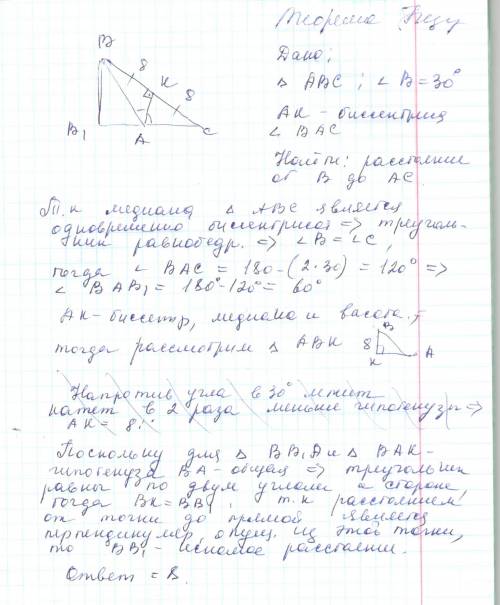 Теорема
Дано:
△ ABC ; ∠ B = 30°
AK - биссектриса
∠ BAC
Найти: расстояние
от B до AC.
B
8
K
8
B₁
A
C
Т.к медиана △ ABC является
одновременно биссектрисой => треуголь-
ник равнобедр. => ∠B = ∠C,
тогда ∠ BAC = 180 - (2·30) = 120° =>
∠ BAB₁ = 180° - 120° = 60°
AK - биссектр, медиана и высота.
тогда рассмотрим △ ABK
B
8
K
A
Напротив угла в 30° лежит
катет в 2 раза меньше гипотенузы =>
AK = 8
Поскольку для △ BB₁A и △ BAK -
гипотенуза BA - общая => треугольник
равны по двум углам и стороне
тогда BK = BB₁, т.к расстоянием
от точки до прямой является
перпендикуляр, опущ. из этой точки,
то BB₁ - искомое расстояние.
Ответ = 8.